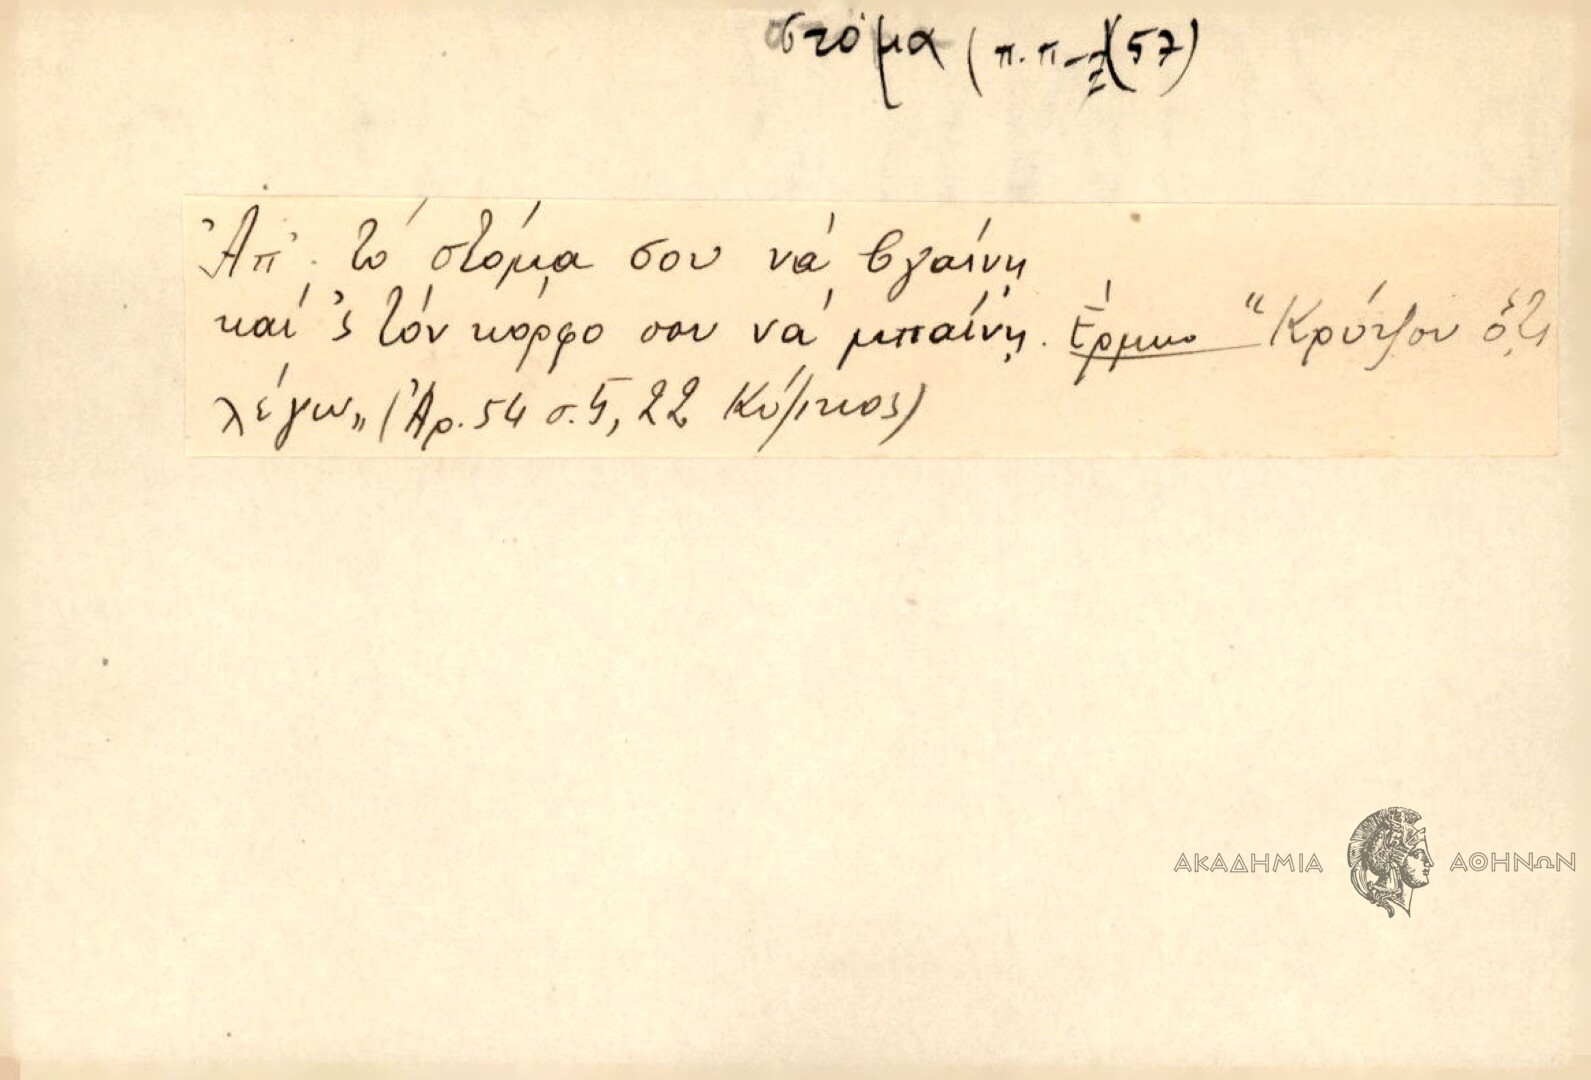 στόμα (π.π. (57)
Ἀπ' τό στόμα σου νά βγαίνῃ
καί 'ς τόν κόρφο σου νά μπαίνῃ. Ἑρμ. "Κρύψου ὅ,τι
λέγω„ (Ἀρ. 54 σ. 5, 22 Κύζικος)
ΑΚΑΔΗΜΙΑ ΑΘΗΝΩΝ